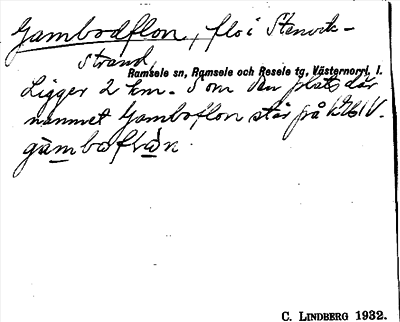 Gambodflon, flo i Stenvik-
strand
Ramsele sn, Ramsele och Resele tg, Västernorrl. l.
Ligger 2 km. S om den plats där
namnet Gamboflon står på
gàmbofɫàn.
C. LINDBERG 1932.